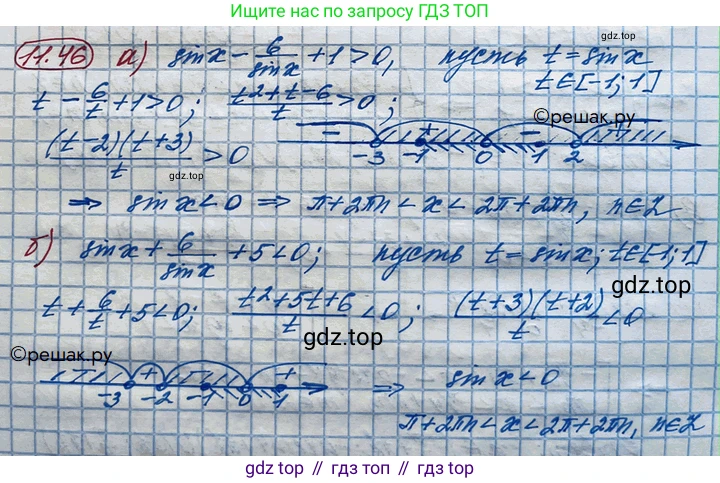 Ищите решебник по запросу ГДЗ ТОП
11.46 а) sin x - 6/sin x + 1 > 0, пусть t = sin x
t ∈ [-1; 1]
t - 6/t + 1 > 0; (t² + t - 6)/t > 0;
©решак.ру
(t-2)(t+3)/t > 0
- + -
-3 -1 0 1 2
gdz.top
⇒ sin x < 0 ⇒ π + 2πn < x < 2π + 2πn, n ∈ Z
б) sin x + 6/sin x + 5 < 0; пусть t = sin x; t ∈ [-1; 1]
gdz.top
t + 6/t + 5 < 0; (t² + 5t + 6)/t < 0; (t+3)(t+2)/t < 0
gdz.top
©решак.ру
+ +
-3 -2 -1 0 1
⇒ sin x < 0
π + 2πn < x < 2π + 2πn, n ∈ Z
gdz top // гдз топ // gdz top